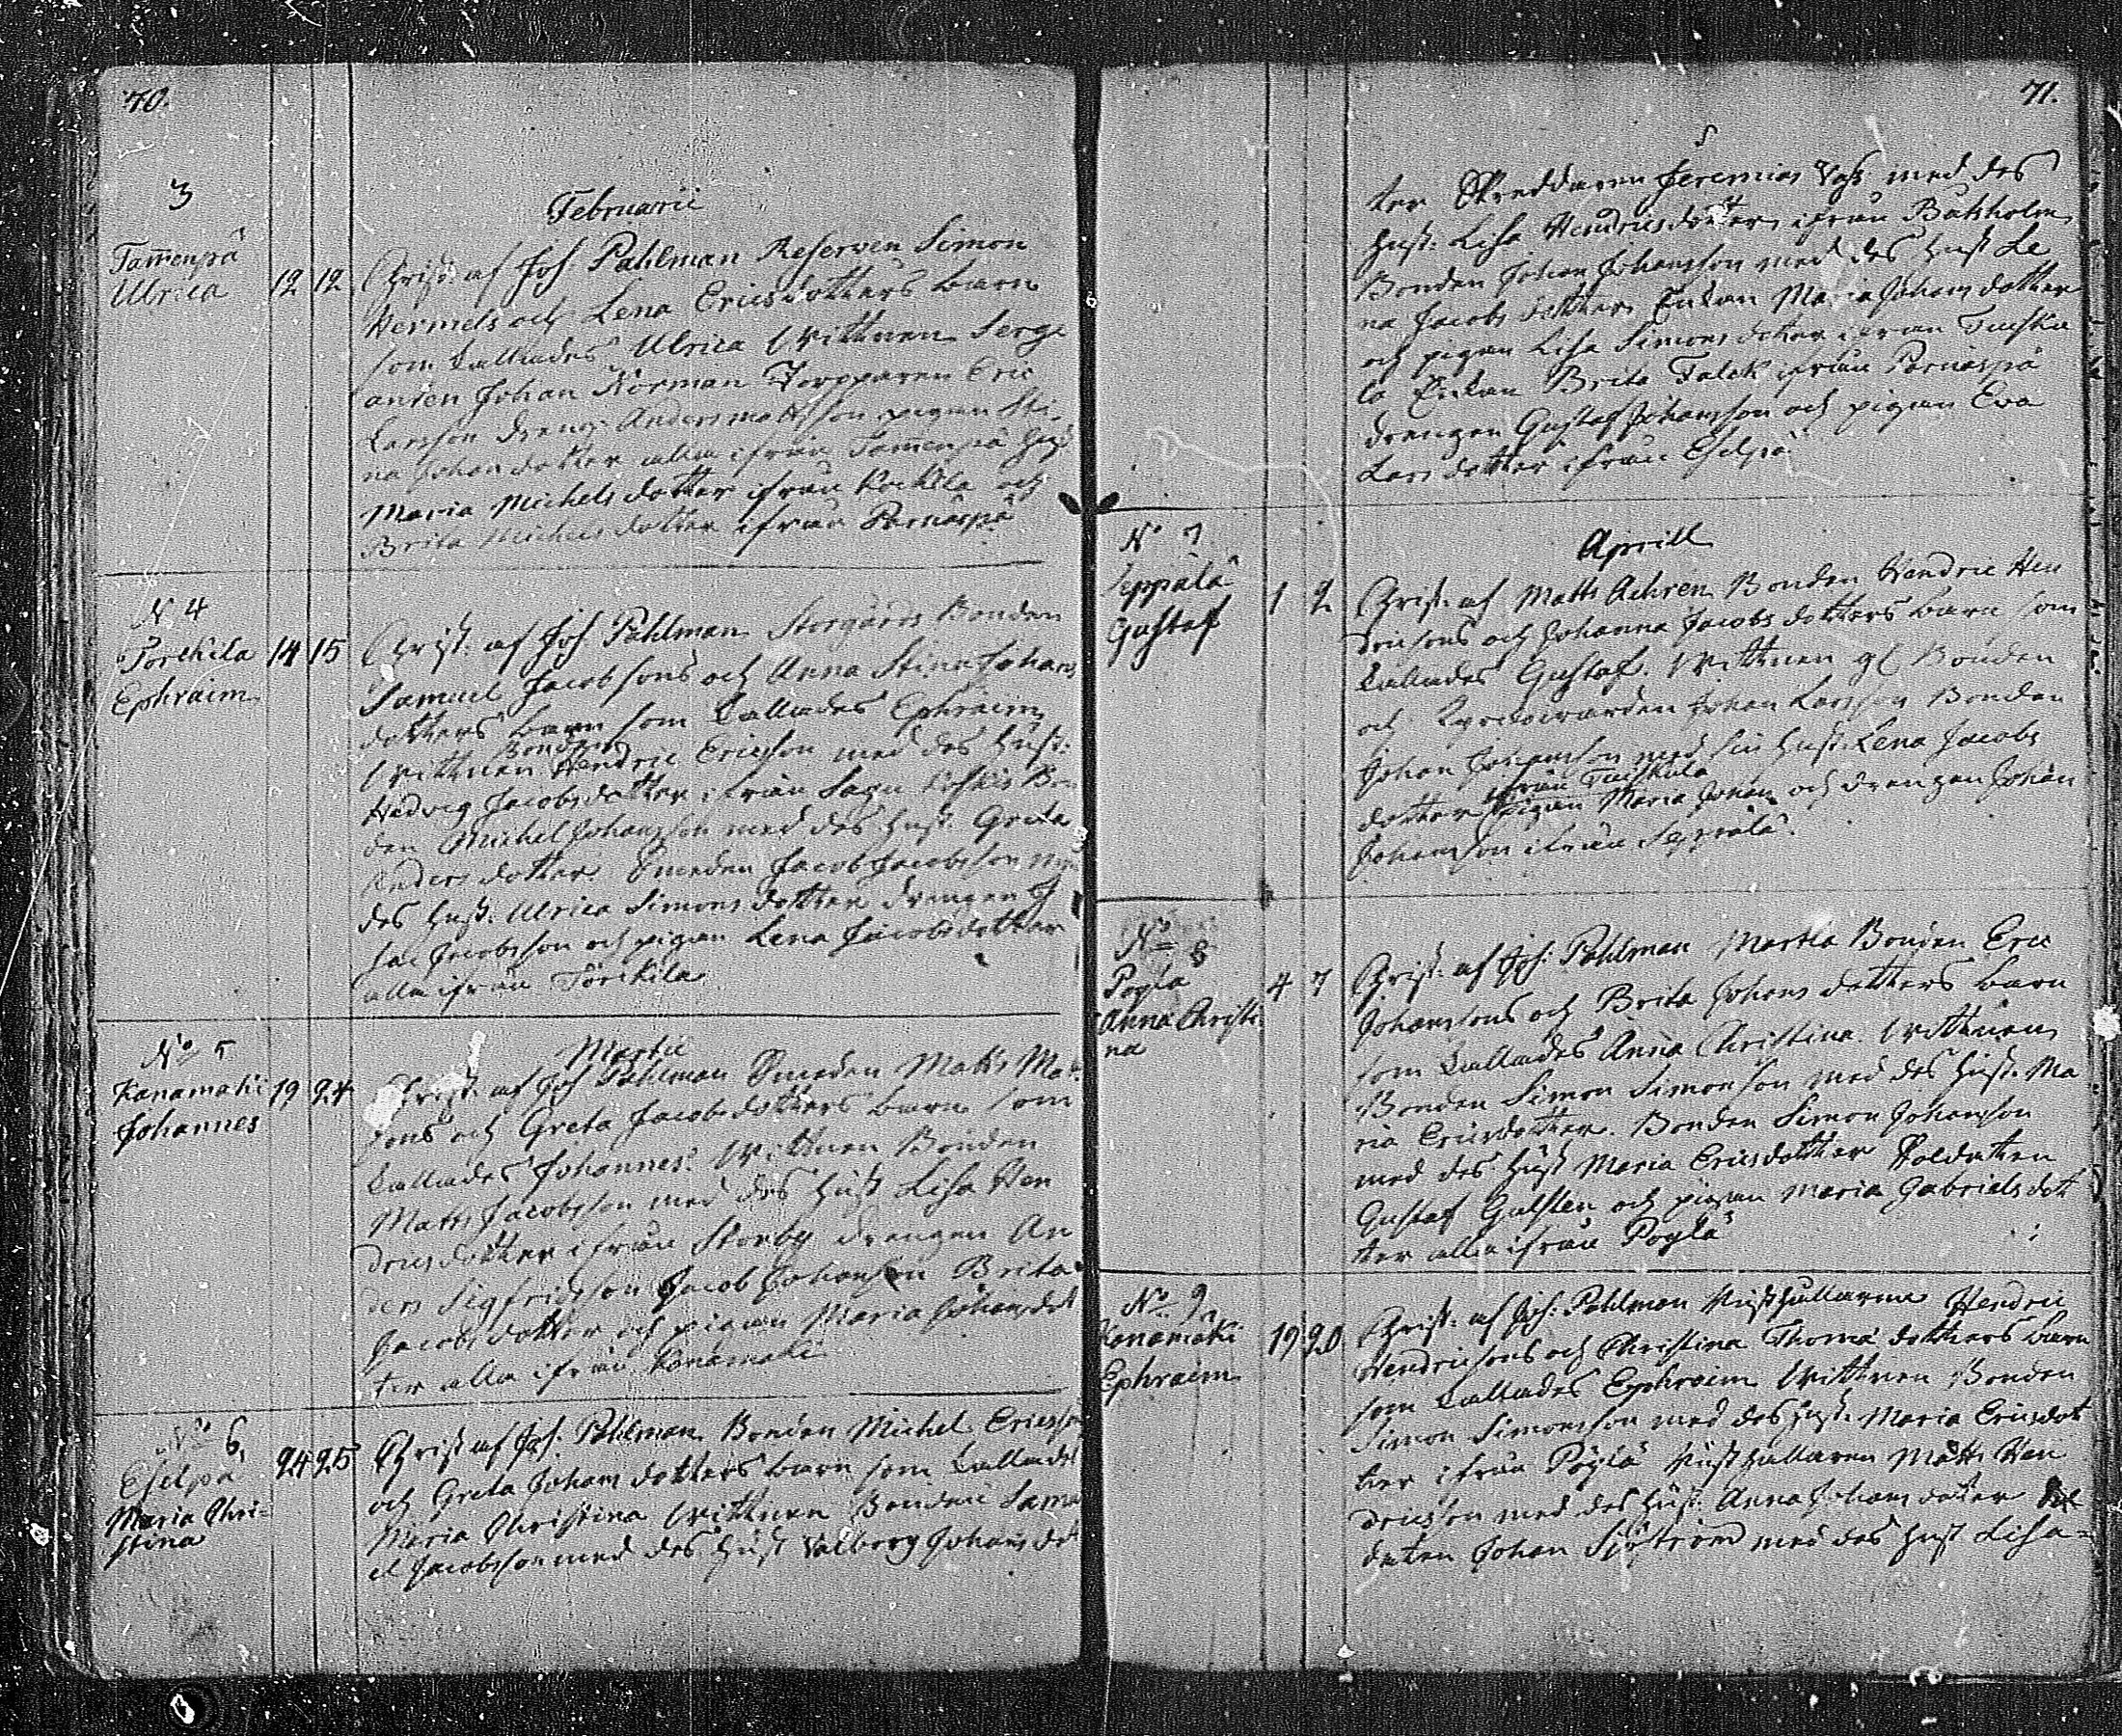 70.
3
Februarii
Tam̃enpä
Ulrica
12 12
Christ. af Joh Pahlman Reserven Simon
Hermels och Lena Ericsdotters barn
som kallades Ulrica Wittnen Serge
anten Johan Norman Torpparen Eric
Larsson drengen Anders Mattsson pigan Sti
na Johansdotter alla ifrån Tam̃enpä
Maria Michelsdotter ifrån Kockila och
Brita Michelsdotter ifrån Parnaspä
N 4
Torckila
Ephraim
14 15
Christ. af Joh Pahlman Storgårds Bonden
Samuel Jacobsons och Anna Stina Johans
dotters barn som kallades Ephraim
Bonden
Wittnen Hendric Ericsson med des Hust:
Hedvig Jacobsdotter ifrån Sagu Koskis Bon
den Michel Johansson med des Hust. Greta
Andersdotter Smeden Jacob Jacobsson
des Hust. Ulrica Simonsdotter drengen
Jacobsson och pigan Lena Jacobsdotter
alla ifrån Torckila
No 5
Kanamaki
Johannes
19 24
Martii
Christ. af Joh Pahlman Smeden Matts Mat
sons och Greta Jacobsdotters barn som
kallades Johannes. Wittnen Bonden
Matts Jacobsson med des Hust Lisa Hen
dricsdotter ifrån Storby drengen An
ders Sigfridsson Jacob Johansson Brita
Jacobsdotter och pigan Maria Johansdot
ter alla ifrån Kanamaki
No 6.
Eselpä
Maria Chri-
stina
24 25
Christ af Joh. Pahlman Bonden Michel Ericsso
och Greta Johansdotters barn som kallades
Maria Christina Wittnen Bonden Samu
el Jacobsson med des Hust Valborg Johansdot
71.
ter Skreddaren Jeremias Vass med des
Hust. Lisa Hendricsdotter ifrån Bukholm
Bonden Johan Johansson med des Hust Le
na Jacobsdotter Enkan Maria Johansdotter
och pigan Lisa Simonsdotter ifrån Tuisku
la Enkan Brita Falck ifrån Parnaspä
drengen Gustaf Johansson och pigan Eva
Larsdotter ifrån Eselpä
No 7
Seppälä
Gustaf
1 2
Aprill
Christ. af Matts Achren Bonden Hendric Hen
dricsons och Johanna Jacobsdotters barn som
kallades Gustaf. Wittnen gl Bonden
och Kyrckowärden Johan Larsson Bonden
Johan Johansson med sin Hust. Lena Jacobs
ifrån Tuiskula
dotter pigan Maria Johans och drengen Johan
Johansson ifrån Seppälä.
No 8
Poylä
Anna Christi
na
4 7
Christ. af Joh. Pahlman Martla Bonden Eric
Johanssons och Brita Johansdotters barn
som kallades Anna Christina. Wittnen
Bonden Simon Simonson med des Hust. Ma
ria Ericsdotter. Bonden Simon Johansson
med des Hust Maria Ericsdotter Soldaten
Gustaf Gulsten och pigan Maria Gabrielsdot
ter alla ifrån Poylä
No 9
Kanamaki
Ephraim
19 20
Christ. af Joh. Pahlman Rusthållarne Hendric
Hendricsons och Christina Thomä dotters barn
som kallades Ephraim Wittnen Bonden
Simon Simonsson med des Hust. Maria Ericsdot
ter ifrån Poylä Rusthållaren Matts Hen
dricsson med des Hust. Anna Johansdotter Sol
daten Johan Sjöström med des Hust Lisa=